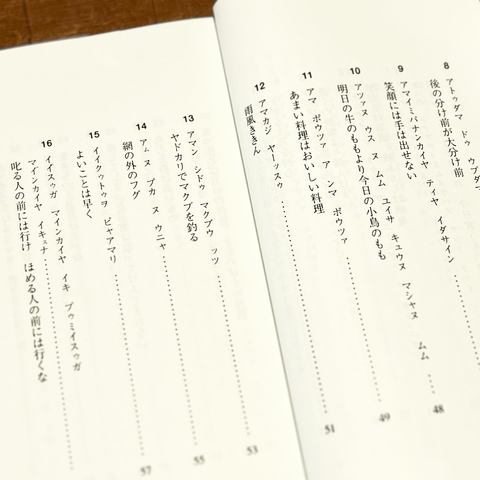 8 アトゥダマ ドゥ ウプダマ
後の分け前が大分け前
9 アマイミパナンカイヤ ティヤ イダサイン
笑顔には手は出せない
48
10 アツァヌ ウス ヌ ムム ユイサ キュウヌ マシャヌ ムム
明日の牛のももより今日の小鳥のもも
49
11 アマ ボウツァ ア ンマ ボウツァ
あまい料理はおいしい料理
51
12 アマカジ ヤーッスゥ
雨風ききん
13 アマン シドゥ マクブウ ッツ
ヤドカリでマクブを釣る
53
14 アム ヌ プカ ヌ ウニャ
網の外のフグ
55
15 イイクゥトゥヲ ピャアマリ
よいことは早く
57
16 イイスゥガ マインカイヤ イキ プゥミイスゥガ
マインカイヤ イキュナ
叱る人の前には行け ほめる人の前には行くな